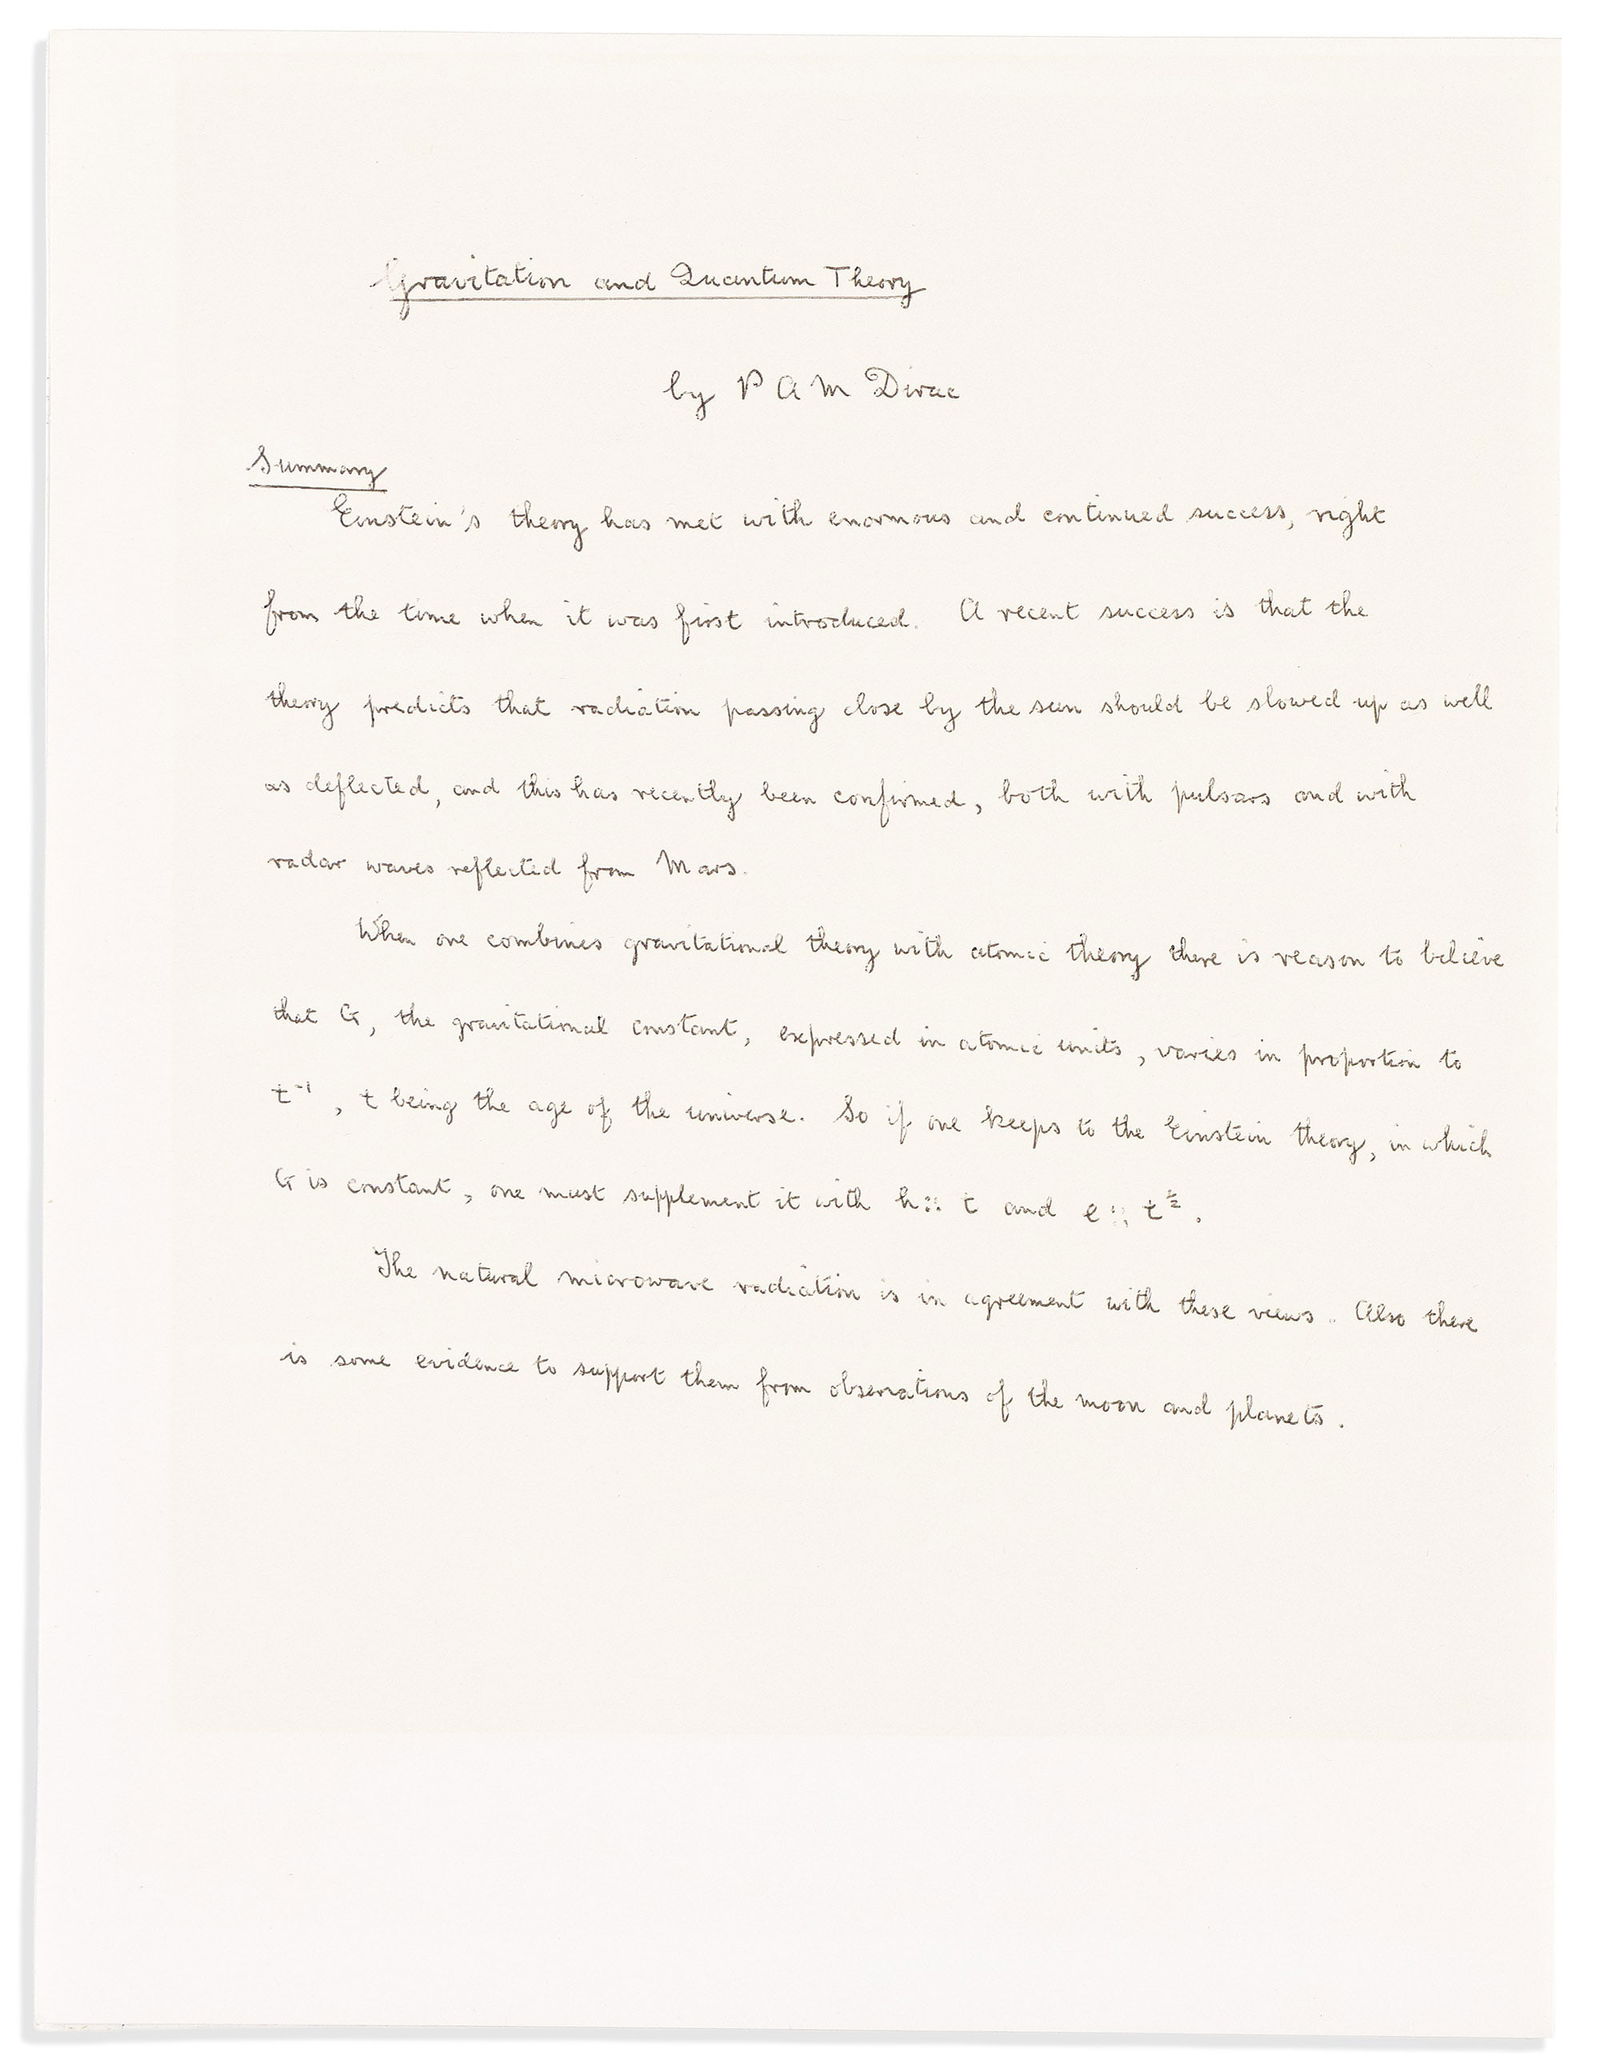 Gravitation and Quantum Theory
by P A M Dirac
Summary
Einstein's theory has met with enormous and continued success, right
from the time when it was first introduced. A recent success is that the
theory predicts that radiation passing close by the sun should be slowed up as well
as deflected, and this has recently been confirmed, both with pulsars and with
radar waves reflected from Mars.
When one combines gravitational theory with atomic theory there is reason to believe
that G, the gravitational constant, expressed in atomic units, varies in proportion to
t⁻¹, t being the age of the universe. So if one keeps to the Einstein theory, in which
G is constant, one must supplement it with h :: t and e :: t^½.
The natural microwave radiation is in agreement with these views. Also there
is some evidence to support them from observations of the moon and planets.